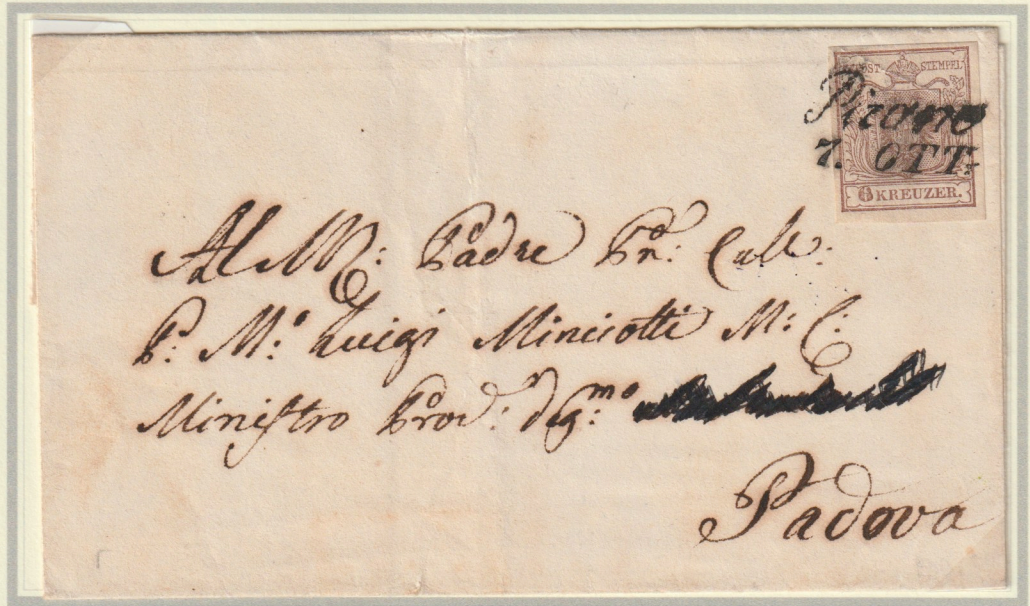 KKPOST-STEMPEL
Pirano
7. OTT:
6 KREUZER.
Al M. R: Padre Pn: Coll:
P: Mo Luigi Minciotti M: C:
Ministro Prov: degmo
Padova